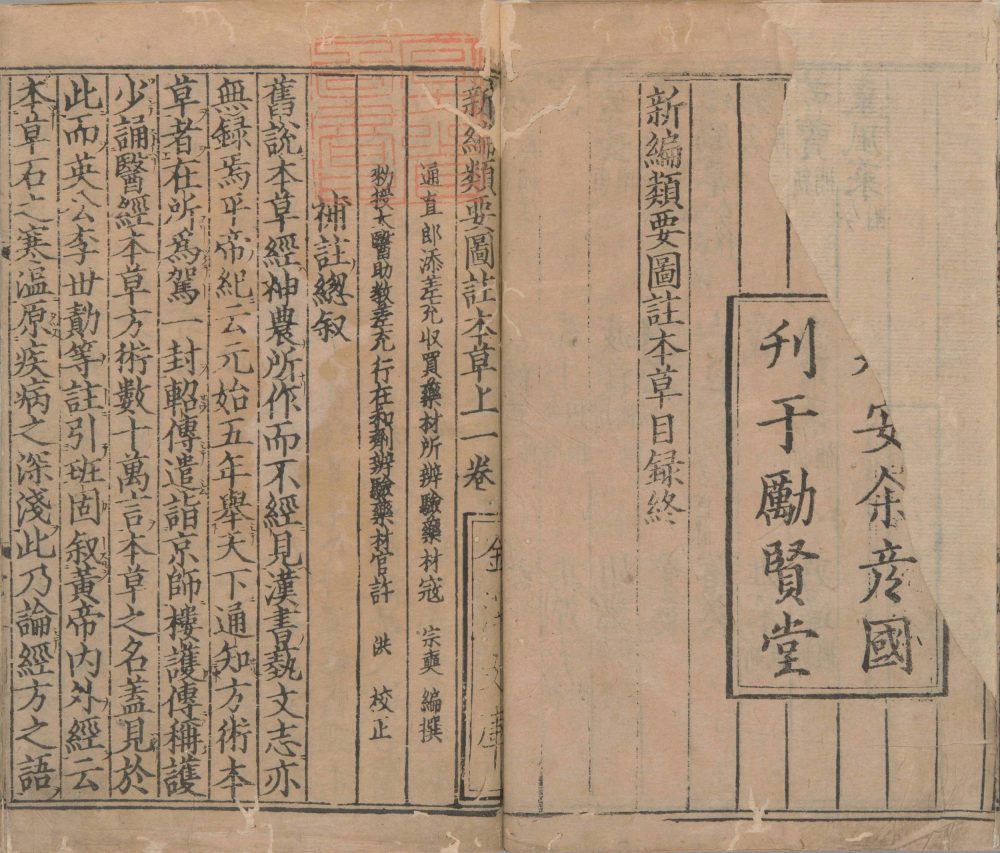 安余彦國
刊于勵賢堂
新編類要圖註本草目録終
新編類要圖註本草上一卷
通直郎添差充収買藥材所辨驗藥材寇 宗奭 編撰
勑授太醫助教差充行在和劑辨驗藥材官許 洪 校正
補註緫叙
舊說本草經神農所作而不經見漢書藝文志亦
無録焉平帝紀云元始五年舉天下通知方術本
草者在所爲駕一封軺傳遣詣京師樓護傳稱護
少誦醫經本草方術數十萬言本草之名盖見於
此而英公李世勣等註引班固叙黄帝内外經云
本草石之寒温原疾病之深淺此乃論經方之語